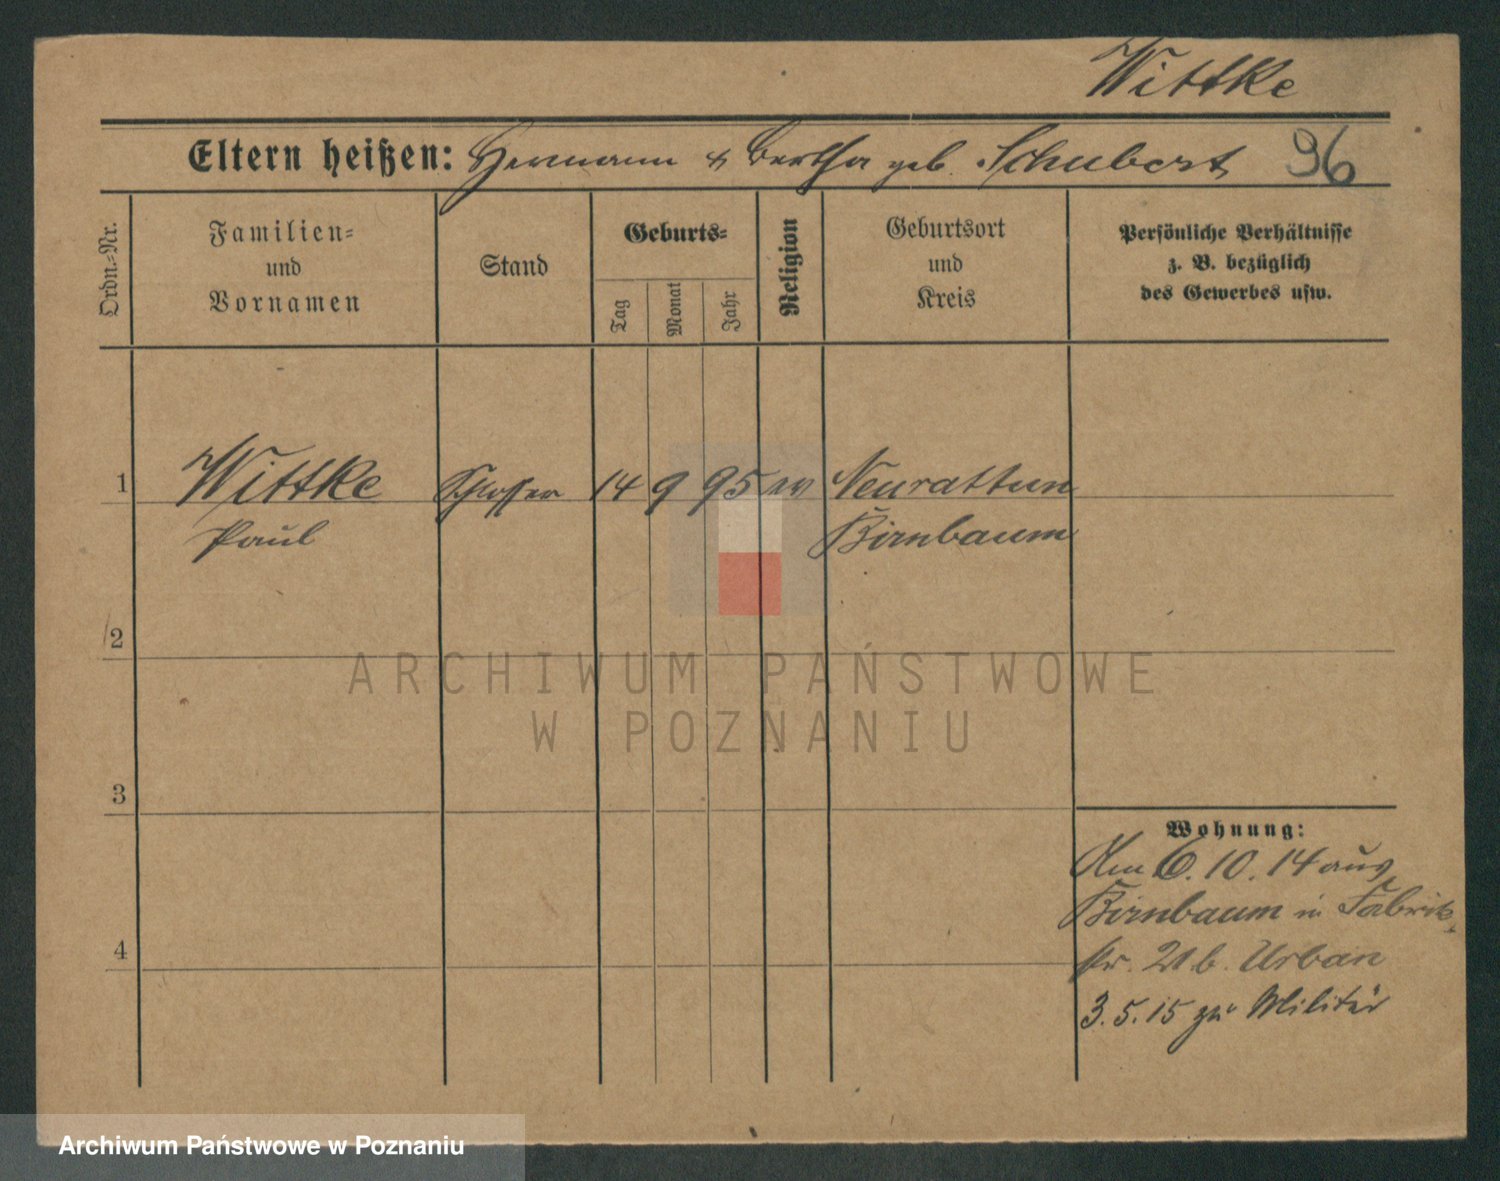 Wittke
Eltern heißen: Hermann & Bertha geb. Schubert 96
Ordn.-Nr.
Familien-
und
Vornamen
Stand
Geburts-
Tag
Monat
Jahr
Religion
Geburtsort
und
Kreis
Persönliche Verhältnisse
z. B. bezüglich
des Gewerbes usw.
1 Wittke Schlosser 14 9 95 ev Neurattum
Paul Birnbaum
2
3
4
Wohnung:
Am 6.10.14 aus
Birnbaum in Fabrik-
str. 21 b. Urban
3.5.15 zu Militär
ARCHIWUM PAŃSTWOWE
W POZNANIU
Archiwum Państwowe w Poznaniu